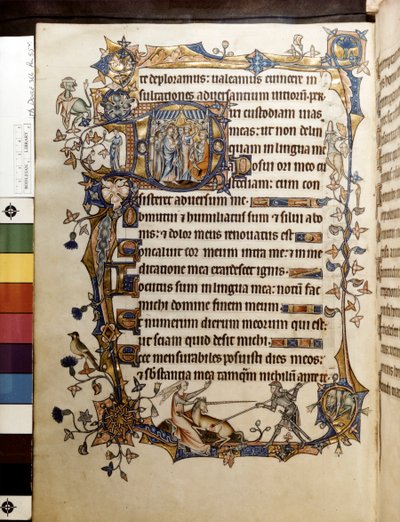 te deploramus: ualeamus euincere in
sultationes aduersantium uitiorum. per
ixi custodiam uias
meas: ut non delin
quam in lingua me
a Posui ori meo cu
stodiam: cum con
sisteret aduersum me
Obmutui & humiliatus sum & silui a bo
nis: & dolor meus renouatus est
Concaluit cor meum intra me: & in me
ditatione mea exardescet ignis
Locutus sum in lingua mea: notum fac
michi domine finem meum
Et numerum dierum meorum qui est:
ut sciam quid desit michi
Ecce mensurabiles posuisti dies meos:
& substantia mea tamquam nichilum ante te
BODLEIAN LIBRARY
MS Douce 366